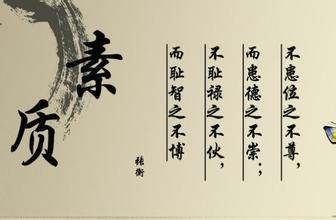 素质
不患位之不尊，
而患德之不崇；
不耻禄之不伙，
而耻智之不博
张衡